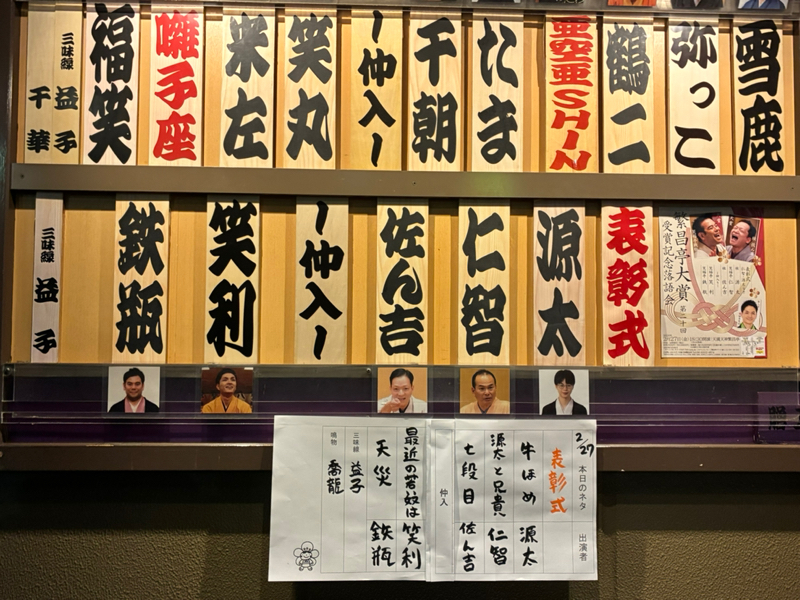 雪鹿
弥っこ
鶴二
亜空亜SHIN
たま
千朝
〜仲入〜
笑丸
米左
囃子座
福笑
三味線 益子
千華
表彰式
源太
仁智
佐ん吉
〜仲入〜
笑利
鉄瓶
三味線 益子
繁昌亭大賞
受賞記念落語会
第二十回
2/27
本日のネタ 出演者
表彰式
牛ほめ 源太
源太と兄貴 仁智
七段目 佐ん吉
仲入
最近の若蚊は 笑利
天災 鉄瓶
三味線 益子
鳴物 喬龍